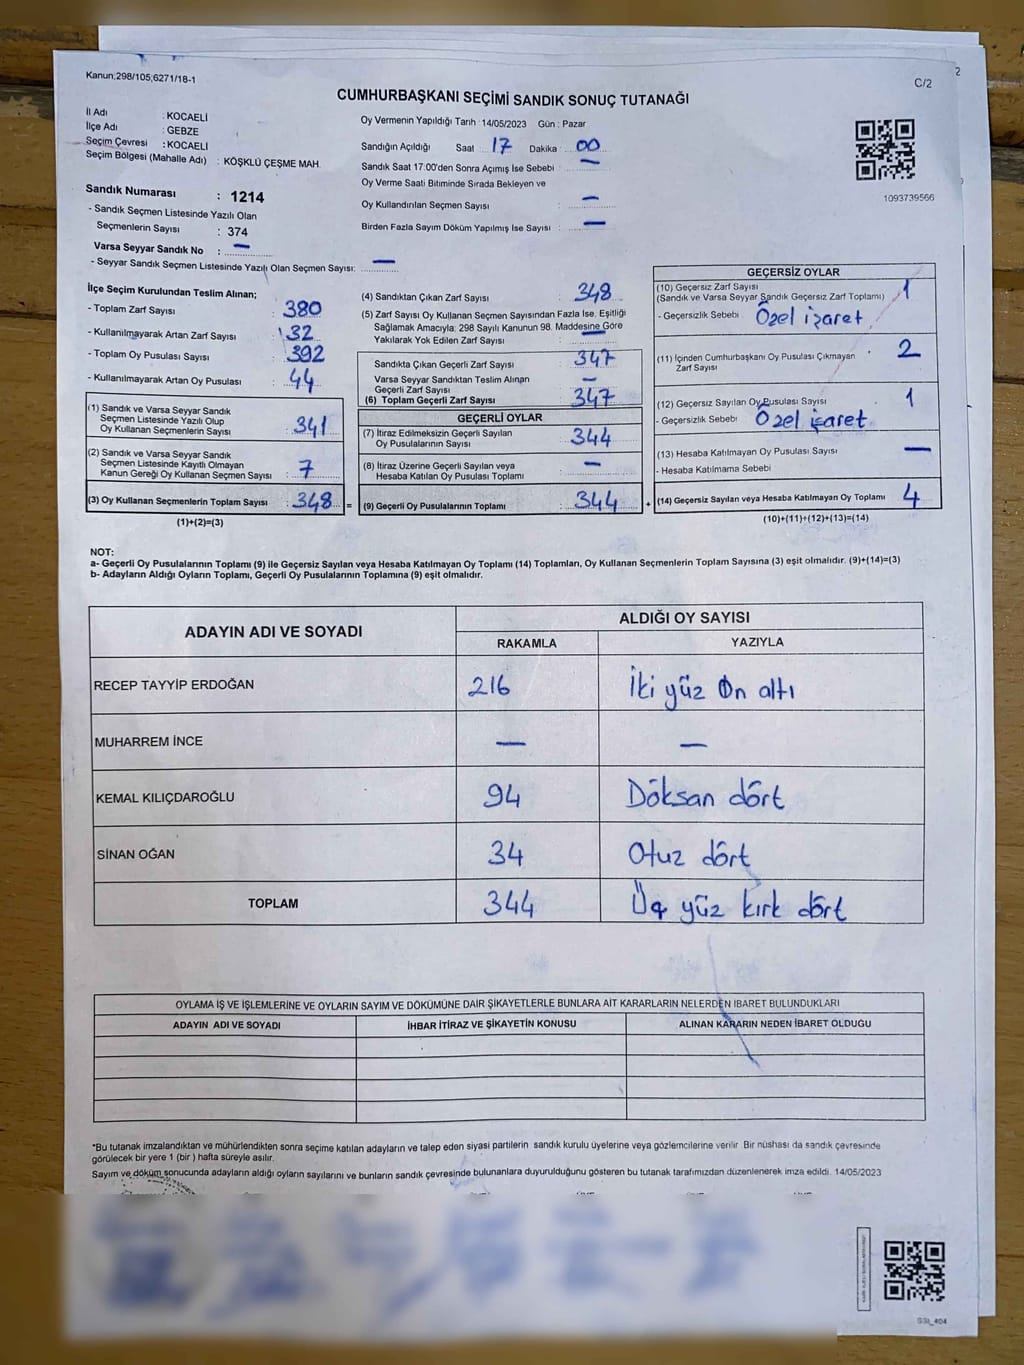 Kanun;298/105;6271/18-1
2
C/2
CUMHURBAŞKANI SEÇİMİ SANDIK SONUÇ TUTANAĞI
İl Adı : KOCAELİ
İlçe Adı : GEBZE
Seçim Çevresi : KOCAELİ
Seçim Bölgesi (Mahalle Adı) : KÖŞKLÜ ÇEŞME MAH.
Sandık Numarası : 1214
- Sandık Seçmen Listesinde Yazılı Olan
Seçmenlerin Sayısı : 374
Varsa Seyyar Sandık No : —
- Seyyar Sandık Seçmen Listesinde Yazılı Olan Seçmen Sayısı: —
Oy Vermenin Yapıldığı Tarih : 14/05/2023 Gün : Pazar
Sandığın Açıldığı Saat 17 Dakika 00
Sandık Saat 17:00'den Sonra Açımış İse Sebebi : —
Oy Verme Saati Bitiminde Sırada Bekleyen ve
Oy Kullandırılan Seçmen Sayısı : —
Birden Fazla Sayım Döküm Yapılmış İse Sayısı : —
1093739566
İlçe Seçim Kurulundan Teslim Alınan;
- Toplam Zarf Sayısı : 380
- Kullanılmayarak Artan Zarf Sayısı : 32
- Toplam Oy Pusulası Sayısı : 392
- Kullanılmayarak Artan Oy Pusulası : 44
(1) Sandık ve Varsa Seyyar Sandık
Seçmen Listesinde Yazılı Olup
Oy Kullanan Seçmenlerin Sayısı : 341
(2) Sandık ve Varsa Seyyar Sandık
Seçmen Listesinde Kayıtlı Olmayan
Kanun Gereği Oy Kullanan Seçmen Sayısı : 7
(3) Oy Kullanan Seçmenlerin Toplam Sayısı : 348 =
(1)+(2)=(3)
(4) Sandıktan Çıkan Zarf Sayısı : 348
(5) Zarf Sayısı Oy Kullanan Seçmen Sayısından Fazla İse, Eşitliği
Sağlamak Amacıyla; 298 Sayılı Kanunun 98. Maddesine Göre
Yakılarak Yok Edilen Zarf Sayısı : —
Sandıkta Çıkan Geçerli Zarf Sayısı : 347
Varsa Seyyar Sandıktan Teslim Alınan
Geçerli Zarf Sayısı : —
(6) Toplam Geçerli Zarf Sayısı : 347
GEÇERLİ OYLAR
(7) İtiraz Edilmeksizin Geçerli Sayılan
Oy Pusulalarının Sayısı : 344
(8) İtiraz Üzerine Geçerli Sayılan veya
Hesaba Katılan Oy Pusulası Toplamı : —
(9) Geçerli Oy Pusulalarının Toplamı : 344 +
GEÇERSİZ OYLAR
(10) Geçersiz Zarf Sayısı
(Sandık ve Varsa Seyyar Sandık Geçersiz Zarf Toplamı) 1
- Geçersizlik Sebebi : Özel işaret
(11) İçinden Cumhurbaşkanı Oy Pusulası Çıkmayan
Zarf Sayısı : 2
(12) Geçersiz Sayılan Oy Pusulası Sayısı : 1
- Geçersizlik Sebebi : Özel işaret
(13) Hesaba Katılmayan Oy Pusulası Sayısı : —
- Hesaba Katılmama Sebebi
(14) Geçersiz Sayılan veya Hesaba Katılmayan Oy Toplamı : 4
(10)+(11)+(12)+(13)=(14)
NOT:
a- Geçerli Oy Pusulalarının Toplamı (9) ile Geçersiz Sayılan veya Hesaba Katılmayan Oy Toplamı (14) Toplamları, Oy Kullanan Seçmenlerin Toplam Sayısına (3) eşit olmalıdır. (9)+(14)=(3)
b- Adayların Aldığı Oyların Toplamı, Geçerli Oy Pusulalarının Toplamına (9) eşit olmalıdır.
ADAYIN ADI VE SOYADI
ALDIĞI OY SAYISI
RAKAMLA YAZIYLA
RECEP TAYYİP ERDOĞAN 216 İki yüz On altı
MUHARREM İNCE — —
KEMAL KILIÇDAROĞLU 94 Doksan dört
SİNAN OĞAN 34 Otuz dört
TOPLAM 344 Üç yüz kırk dört
OYLAMA İŞ VE İŞLEMLERİNE VE OYLARIN SAYIM VE DÖKÜMÜNE DAİR ŞİKAYETLERLE BUNLARA AİT KARARLARIN NELERDEN İBARET BULUNDUKLARI
ADAYIN ADI VE SOYADI İHBAR İTİRAZ VE ŞİKAYETİN KONUSU ALINAN KARARIN NEDEN İBARET OLDUĞU
*Bu tutanak imzalandıktan ve mühürlendikten sonra seçime katılan adayların ve talep eden siyasi partilerin sandık kurulu üyelerine veya gözlemcilerine verilir. Bir nüshası da sandık çevresinde
görülecek bir yere 1 (bir) hafta süreyle asılır.
Sayım ve döküm sonucunda adayların aldığı oyların sayılarını ve bunların sandık çevresinde bulunanlara duyurulduğunu gösteren bu tutanak tarafımızdan düzenlenerek imza edildi. 14/05/2023